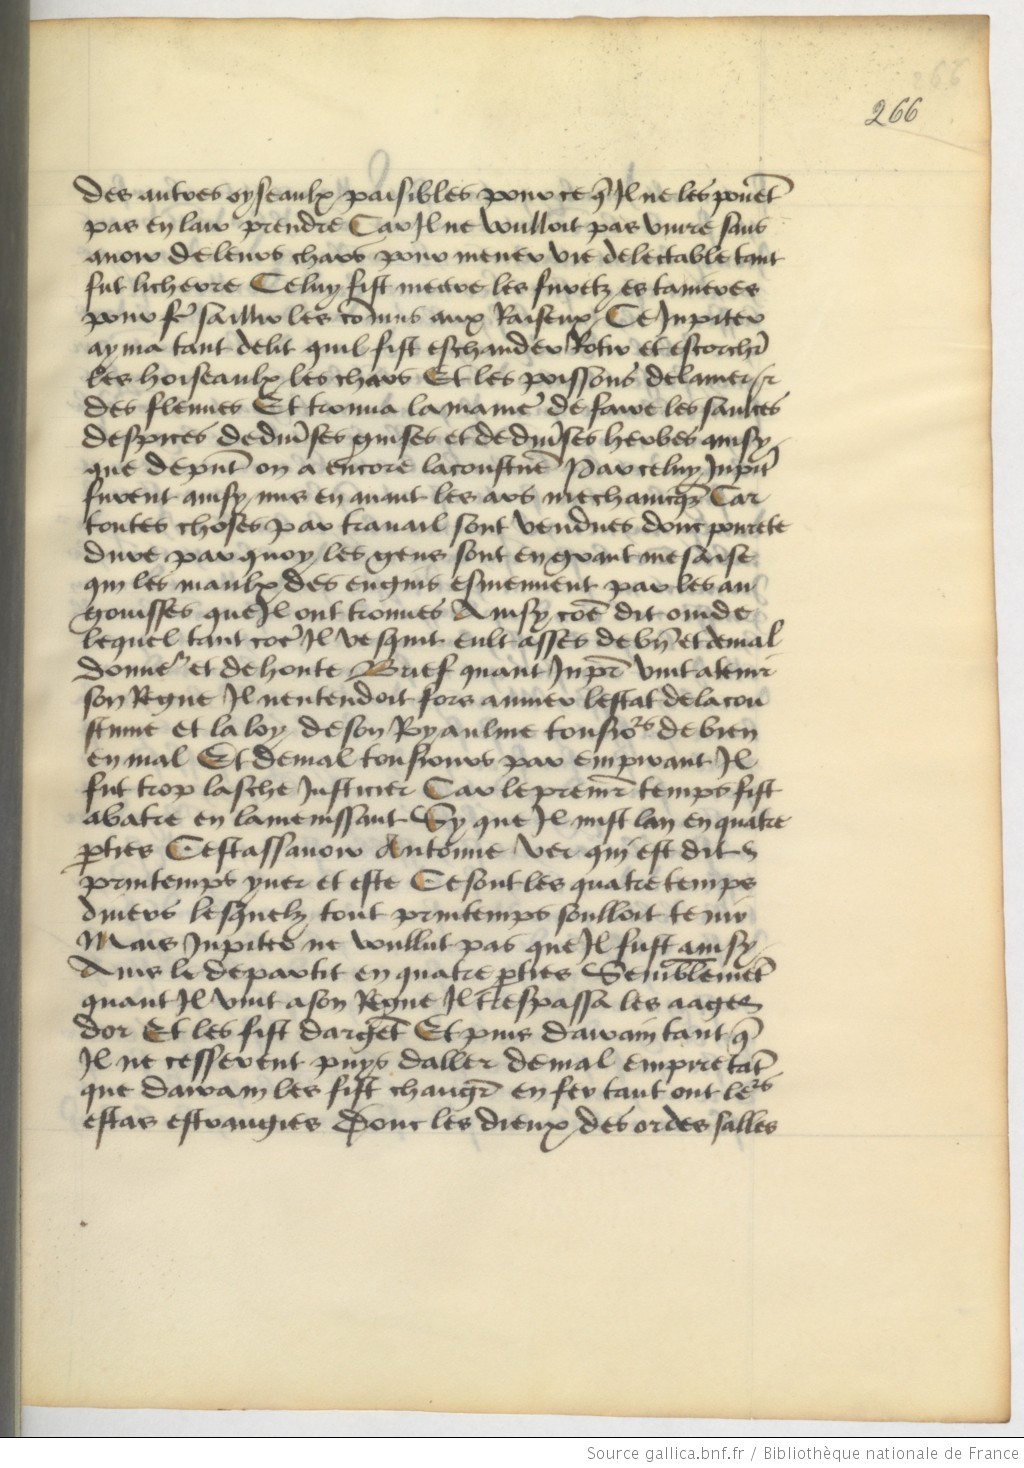 266
des autres oyseaulx paisibles pour ce q̃ Il ne les pouẽt
pas en lair prendre Car Il ne voulloit pas viure sans
auoir de leurs chars pour mener vie delectable tant
fut licherre Celuy fist mettre les furetz es tanieres
pour fẽ saillir les cõnins aux Raiseux Ce Jupiter
ayma tant delit quil fist eschauder Rotir et escorchẽ
les hoiseaulx les chars Et les poissons de la mer
des fleuues Et trouua la maniẽ de faire les saulces
despices de diũses guises et de diũses herbes ainsy
que depuis on a encore la coustũe Par celuy Jupit̃
furent ainsy mis en auant les ars mechanicq̃s Car
toutes choses par trauail sont vendues donc pourete
dure par quoy les gens sont en grant mesaise
qui les maulx des engins esmeuuent par les an
goisses que Il ont trouues Ainsy cõe dit ouide
lequel tant cõe Il vesquit eult asses de bñ et de mal
donneᵘʳ et de honte Brief quant Jupr̃ vint a tenir
son Regne Il nentendoit fors a muer lestat de la cou
stume et la loy de son Royaulme tousiõˢ de bien
en mal Et de mal tousiours par empirant Il
fut trop lasche Justicier Car le premr̃ temps fist
abatre en lameinssant Sy que Il mist lan en quatre
p̱ties Cest assauoir Antonne ver qui est dit
printemps yuer et este Ce sont les quatre temps
diuers lesquelz tout printemps soulloit tenir
Mais Jupiter ne voullut pas que Il fust ainsy
Ains le departit en quatre p̱ties Semblemẽt
quant Il vint a son Regne Il trespassa les aages
dor Et les fist dargẽt Et puis darain tant q̃
Il ne cesserent puys daller de mal empirre tãt
que darain les fist changr̃ en fer tant ont leᵘʳˢ
estas estrangies Donc les dieux des ordes salles
Source gallica.bnf.fr / Bibliothèque nationale de France